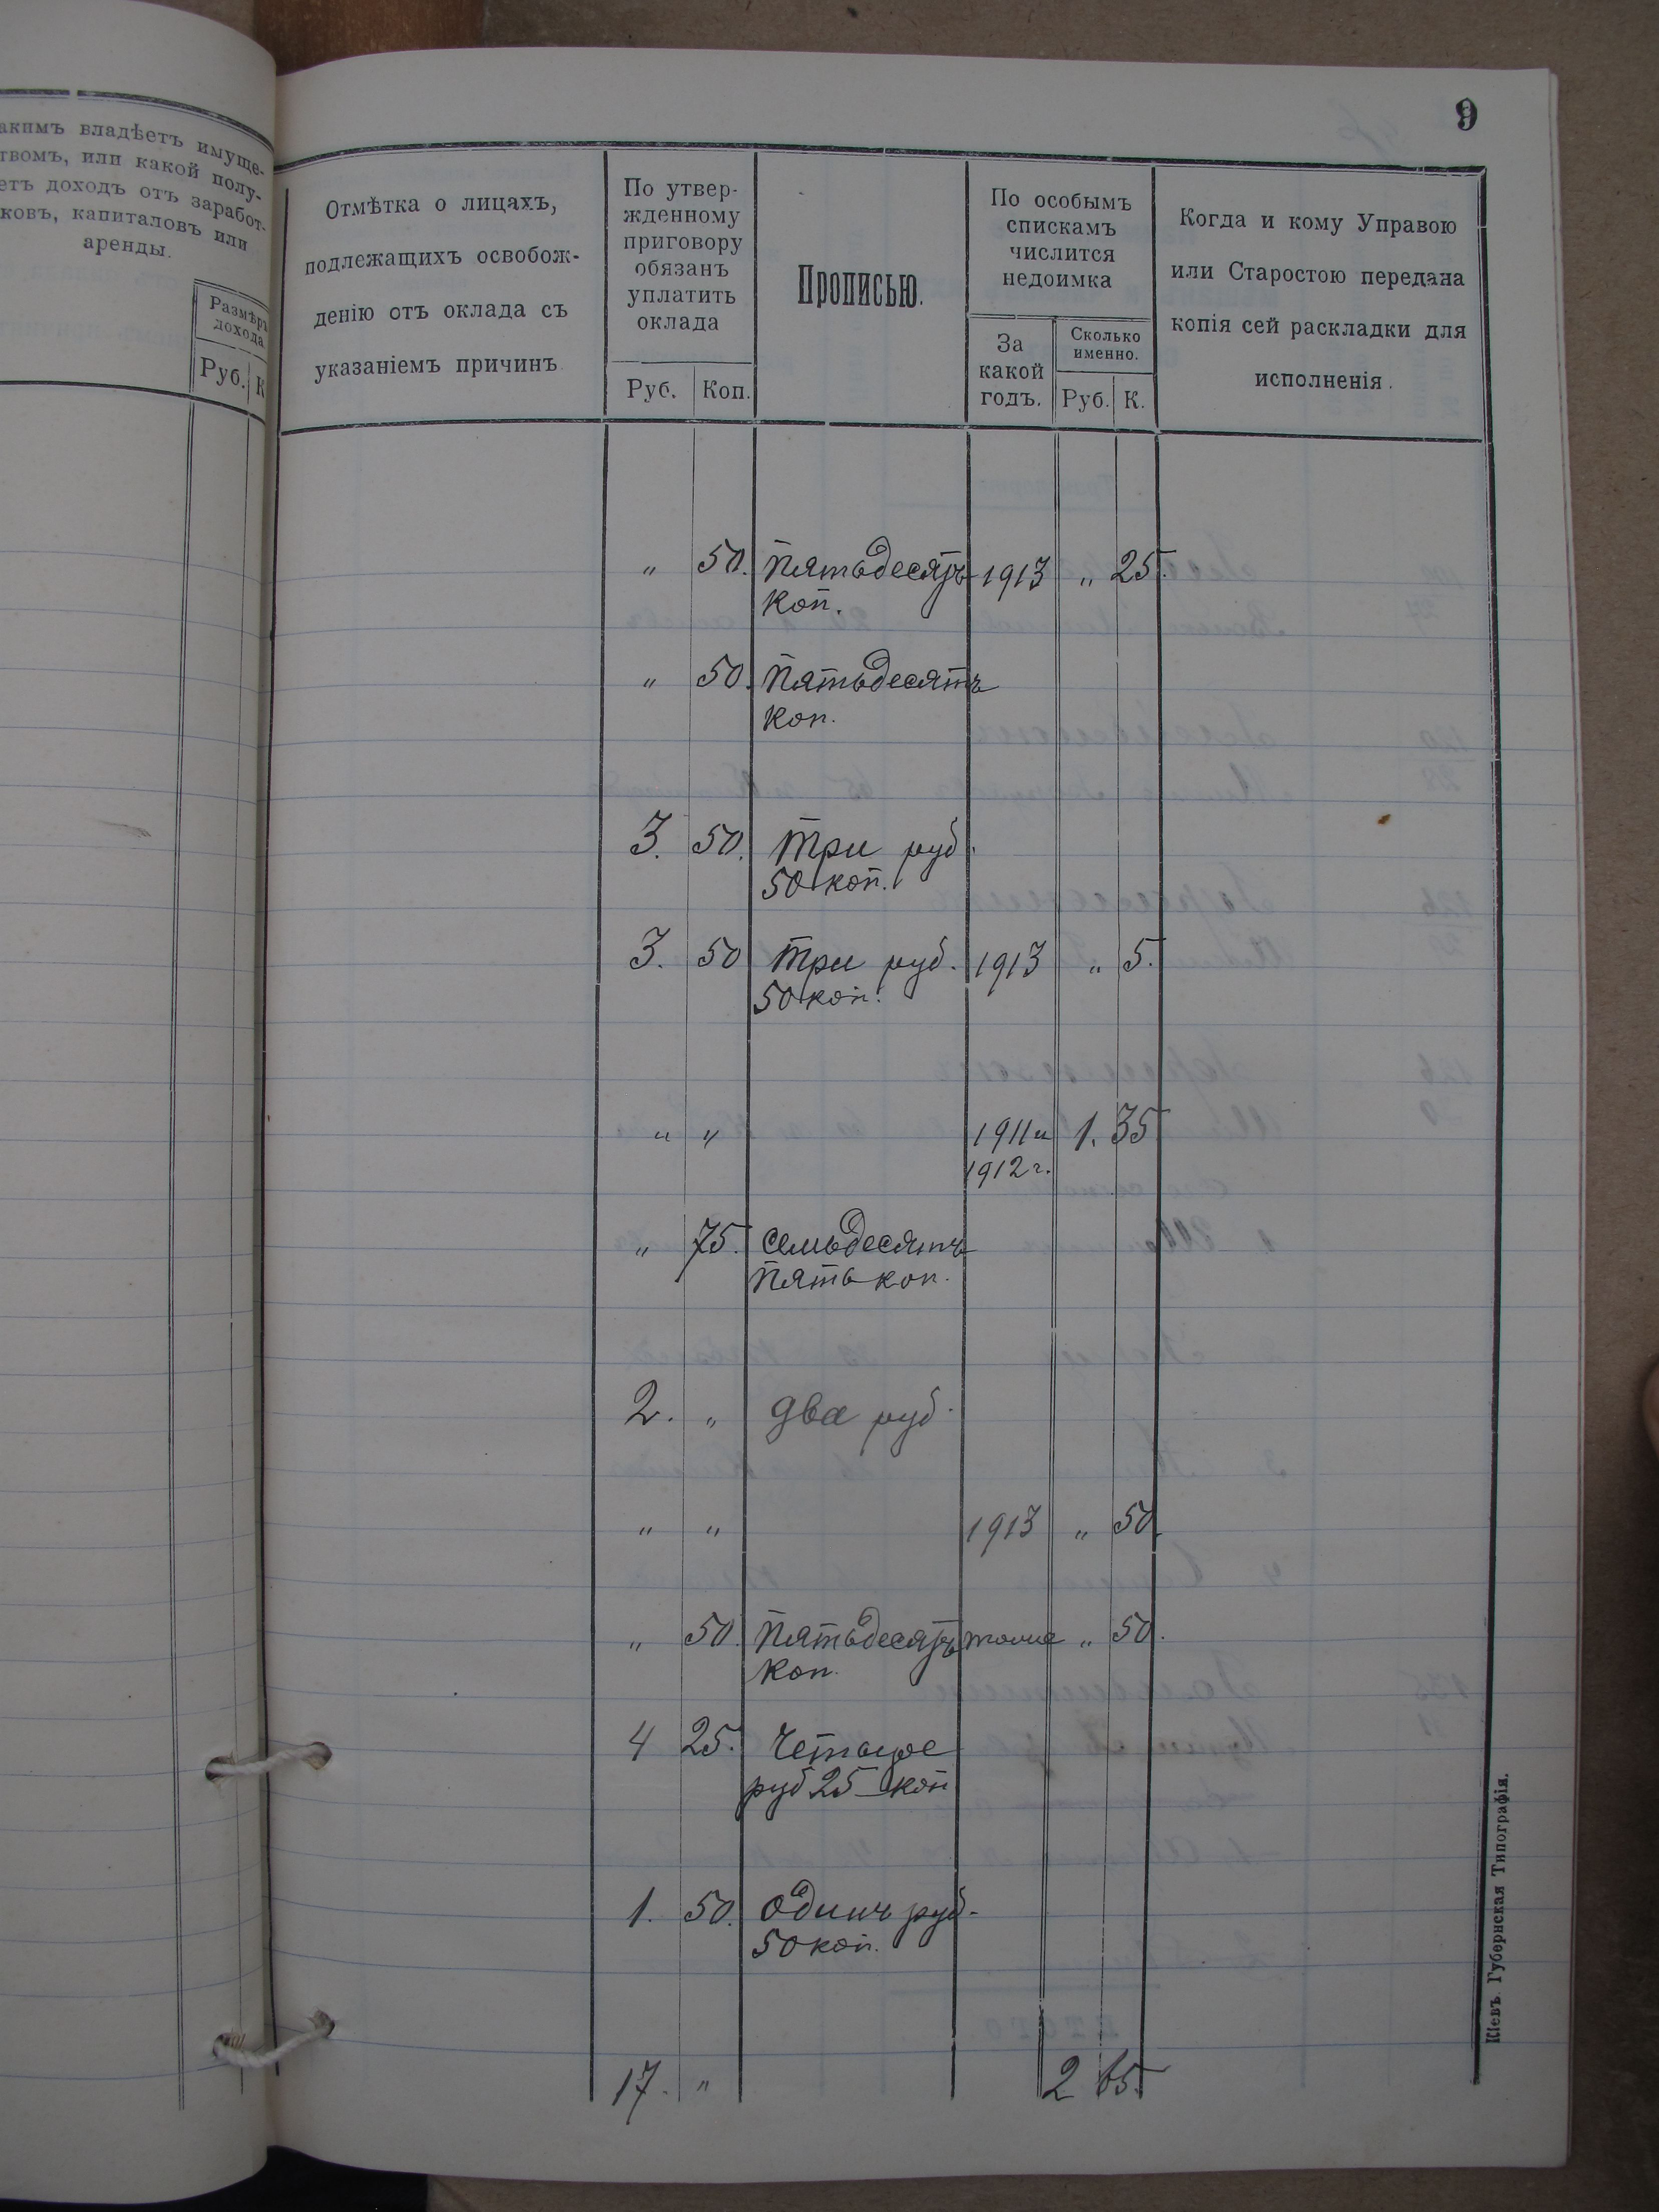 9
акимъ владѣетъ имуще-
твомъ, или какой полу-
етъ доходъ отъ заработ-
ковъ, капиталовъ или
аренды.
Размѣръ
дохода
Руб. К
Отмѣтка о лицахъ,
подлежащихъ освобож-
денію отъ оклада съ
указаніемъ причинъ
По утвер-
жденному
приговору
обязанъ
уплатить
оклада
Руб. Коп.
Прописью.
По особымъ
спискамъ
числится
недоимка
За
какой
годъ.
Сколько
именно.
Руб. К.
Когда и кому Управою
или Старостою передана
копія сей раскладки для
исполненія.
„ 50. Пятьдесятъ 1913 „ 25.
коп.
„ 50. Пятьдесятъ
коп.
3. 50. Три руб.
50 коп.
3. 50 Три руб. 1913 „ 5.
50 коп.
„ „ 1911 и 1. 35
1912 г.
„ 75. Семьдесятъ
пять коп.
2. „ Два руб.
„ „ 1913 „ 50.
„ 50. Пятьдесятъ тоже „ 50.
коп.
4 25. Четыре
руб 25 коп
1. 50. Одинъ руб.
50 коп.
17. „ 2 65.
Кіевъ. Губернская Типографія.